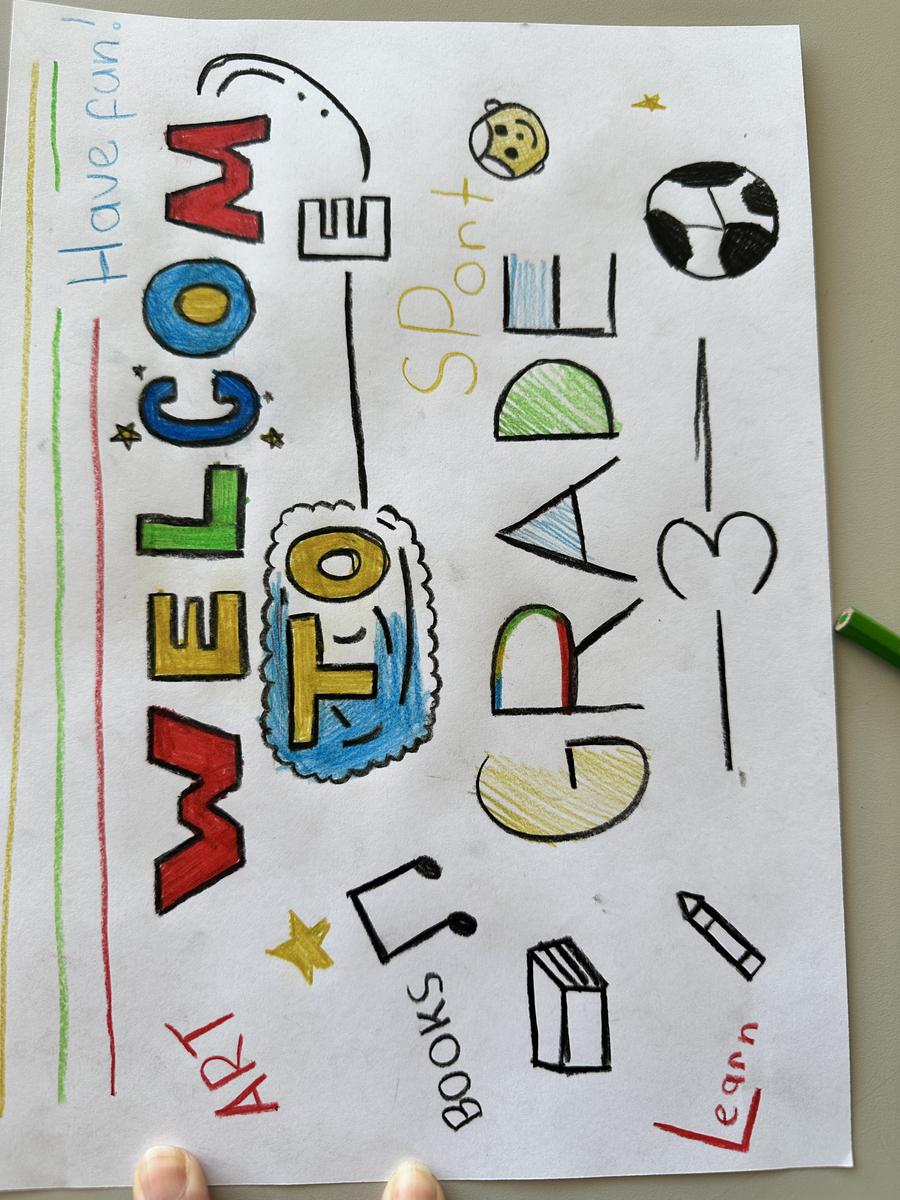 Have fun!
WELCOM
E
TO
ART
Sport
BOOKS
GRADE
3
Learn